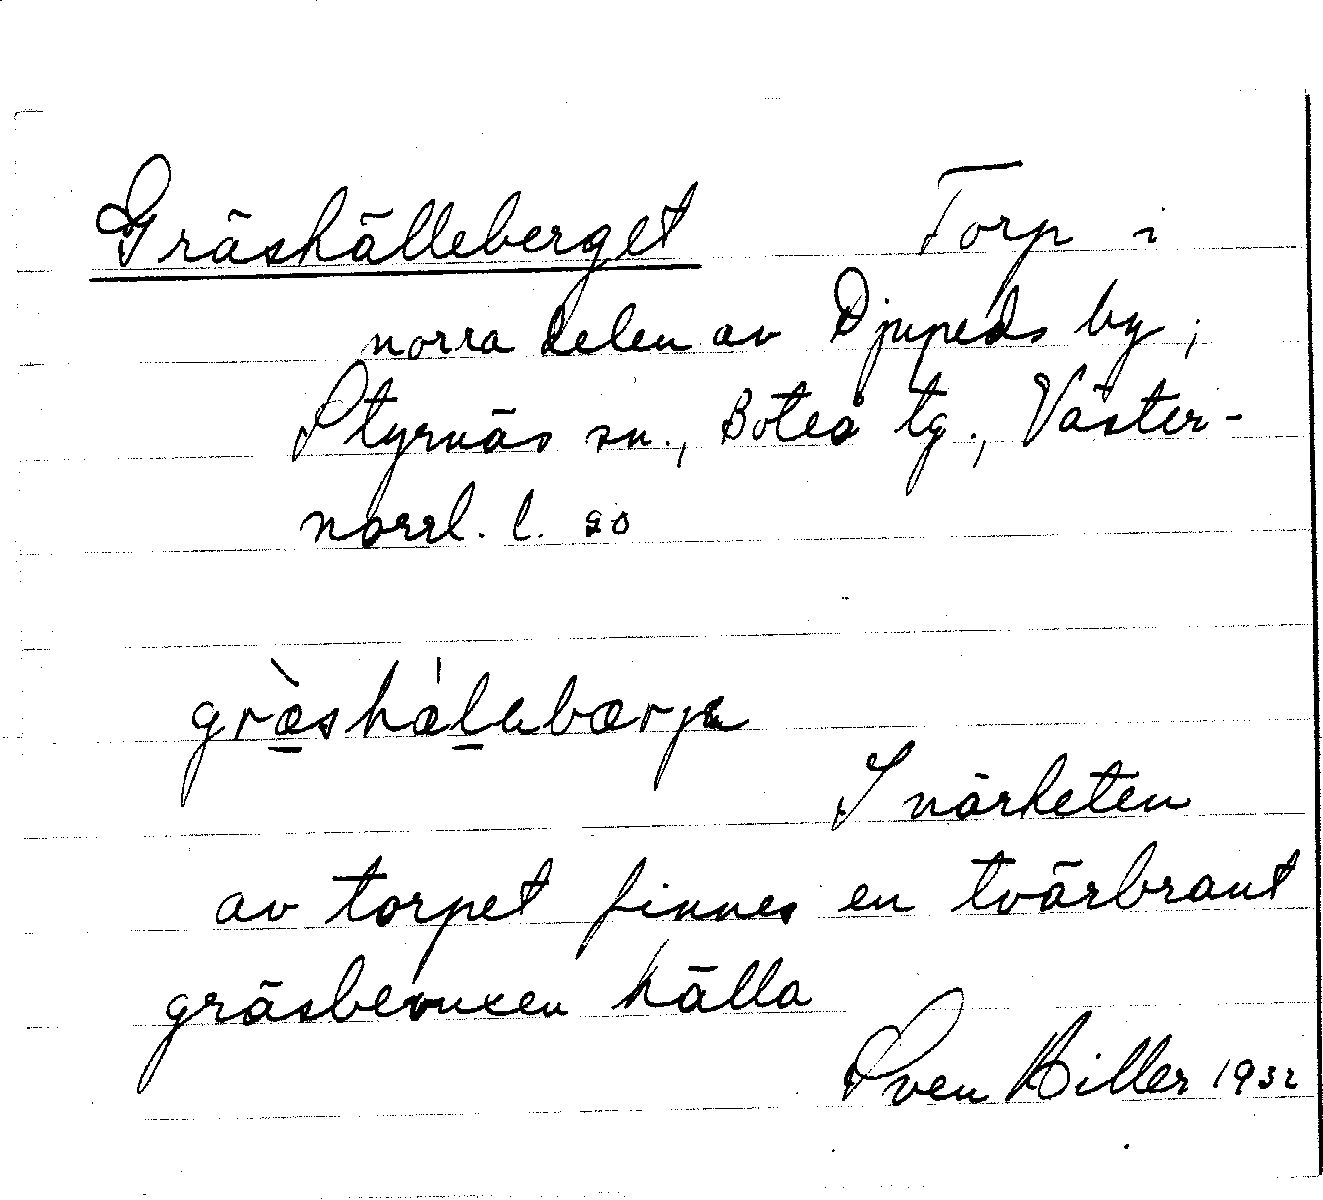 Gräshälleberget Torp i
norra delen av Djupeds by,
Styrnäs sn., Boteå tg., Väster-
norrl. l. 20
græ̀shǽlebærje
I närheten
av torpet finnes en tvärbrant
gräsbevuxen hälla
Sven Hiller 1932